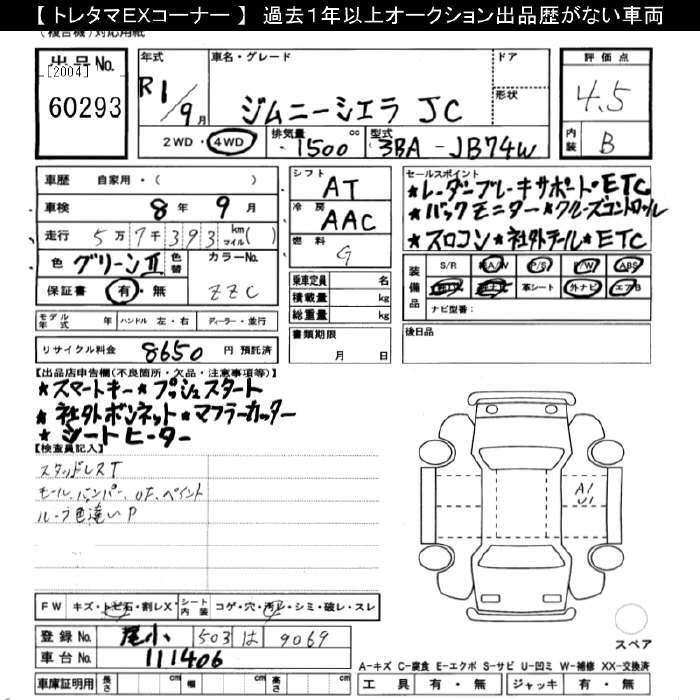 【 トレタマＥＸコーナー 】 過去１年以上オークション出品歴がない車両
(複合機)対応用紙
出品No.
[2004]
60293
年式
R1/9月
車名・グレード
ジムニーシエラ JC
ドア
形状
2WD・4WD
排気量
1500 cc
型式
3BA - JB74W
評価点
4.5
内装
B
車歴 自家用・( )
車検 8年 9月
走行 5万7千393 km マイル( )
色 グリーンⅡ 色替
カラーNo.
ZZC
保証書 有・無
モデル年式 年 ハンドル 左・右 ディーラー・並行
リサイクル料金 8650 円 預託済
シフト
AT
冷房
AAC
燃料
G
乗車定員 名
積載量 kg
総重量 kg
書類期限
月 日
セールスポイント
★レーダーブレーキサポート・ETC
★バックモニター★クルーズコントロール
★スロコン★社外テール★ETC
装備品
S/R 純A/W P/S P/W ABS
革シート 外ナビ エアB
ナビ型番：
後日品
【出品店申告欄(不良箇所・欠品・注意事項等)】
★スマートキー★プッシュスタート
★社外ボンネット★マフラーカッター
★シートヒーター
【検査員記入】
スタッドレスT
モール、バンパー、OF、ペイント
ルーフ色違いP
A1
U1
FW キズ・トビ石・割レX シート内装 コゲ・穴・汚レ・シミ・破レ・スレ
スペア
登録No. 尾小 503 は 9069
車台No. 111406
A-キズ C-腐食 E-エクボ S-サビ U-凹ミ W-補修 XX-交換済
車庫証明用 長さ cm 幅 cm 高さ cm
工具 有・無 ジャッキ 有・無